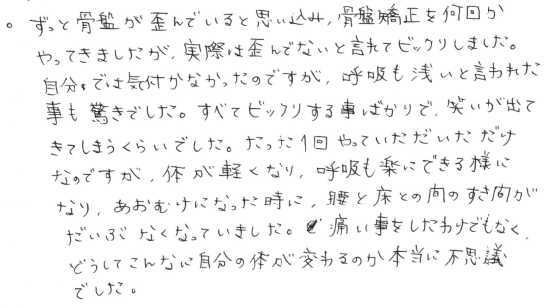 。ずっと骨盤が歪んでいると思い込み、骨盤矯正を何回か
やってきましたが、実際は歪んでないと言れてビックリしました。
自分では気付かなかったのですが、呼吸も浅いと言われた
事も驚きでした。すべてビックリする事ばかりで、笑いが出て
きてしまうくらいでした。たった1回やっていただいただけ
なのですが、体が軽くなり、呼吸も楽にできる様に
なり、あおむけになった時に、腰と床との間のすき間が
だいぶなくなっていました。痛い事をしたわけでもなく、
どうしてこんなに自分の体が変わるのか本当に不思議
でした。